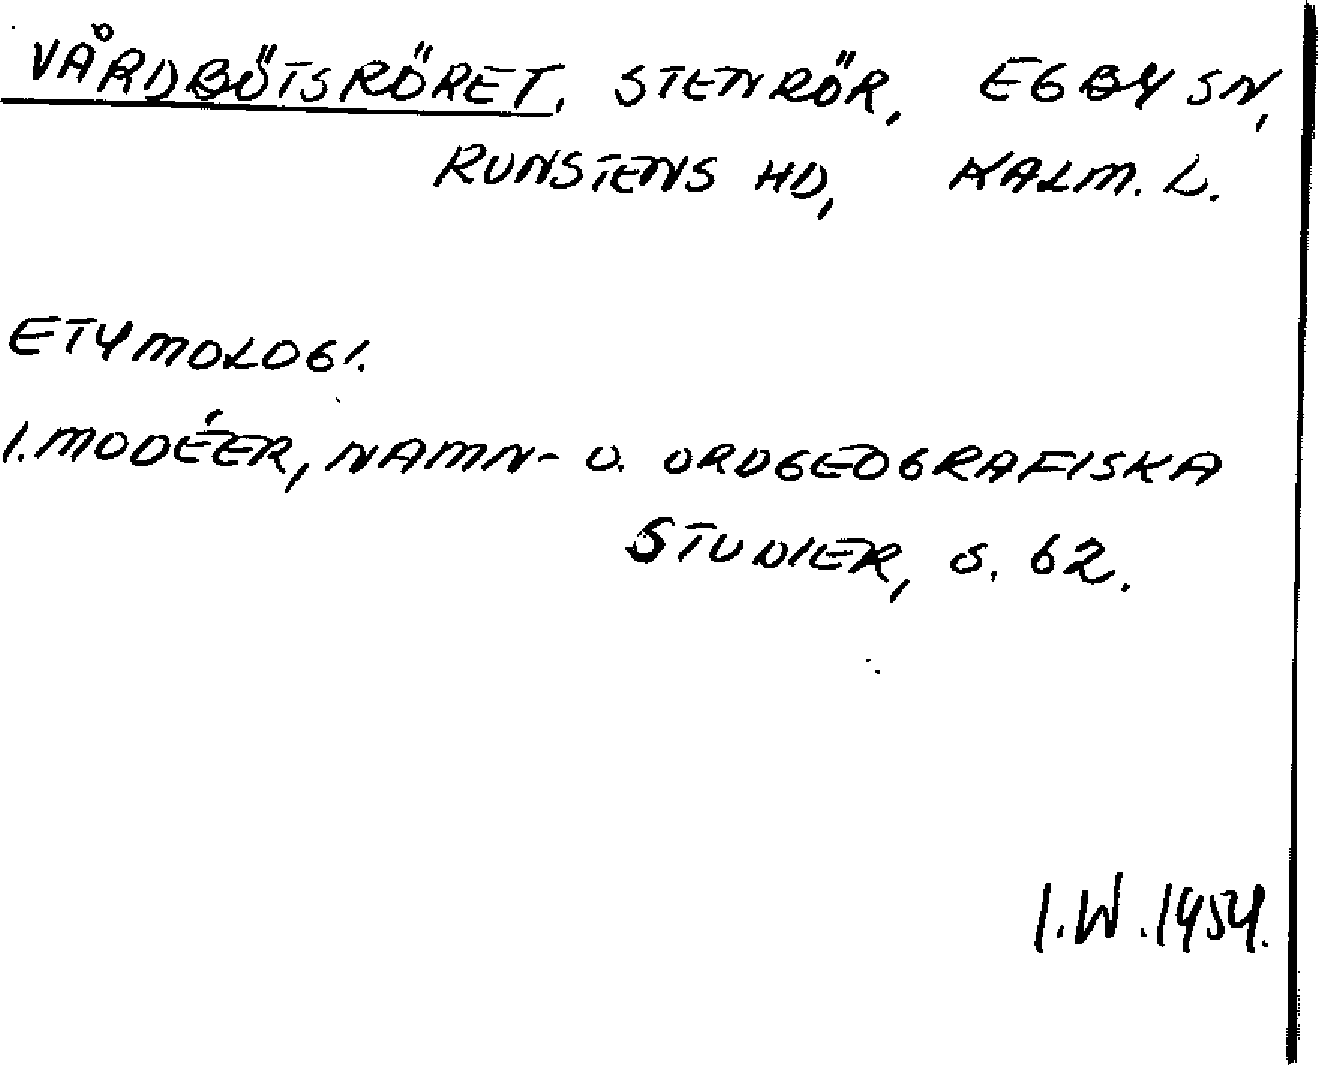 VÅRDBÖTSRÖRET. STENRÖR, EGBY SN,
RUNSTENS HD, KALM. L.
ETYMOLOGI.
I. MODÉER, NAMN- O. ORDGEOGRAFISKA
STUDIER, S. 62.
I.W. 1954.